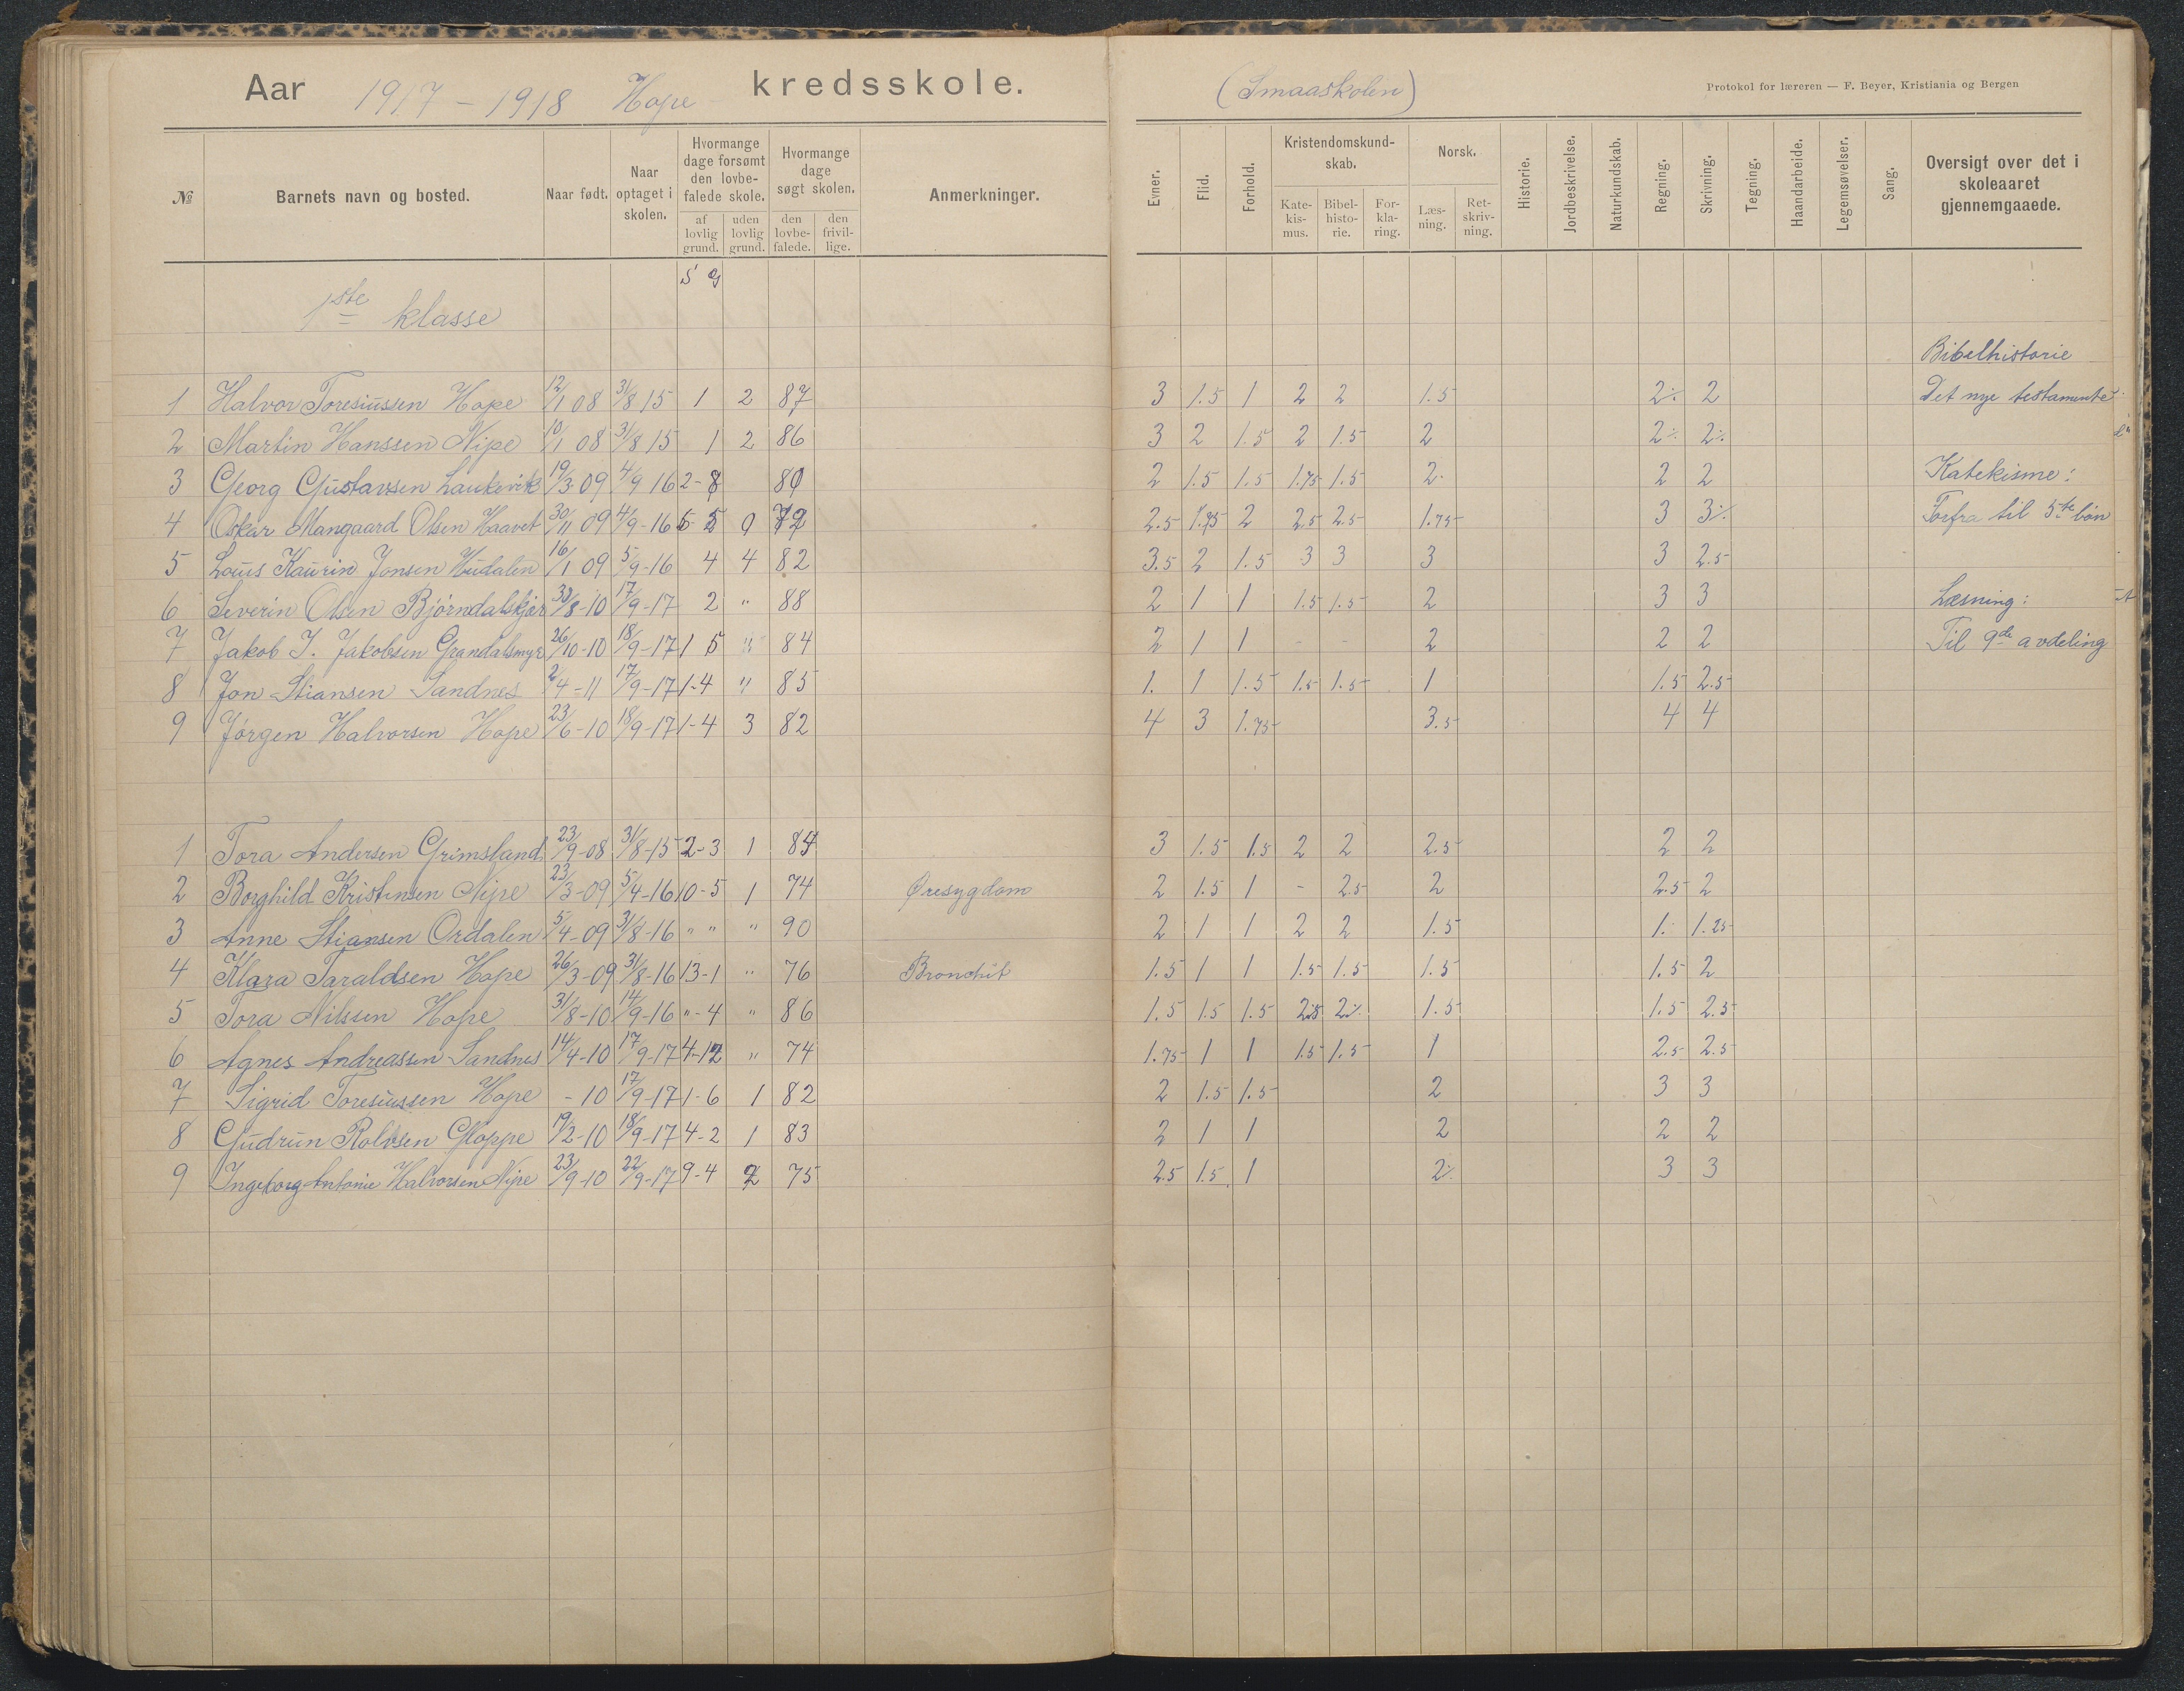 Aar 1917 - 1918 Hope kredsskole. (Smaaskolen) Protokol for læreren — F. Beyer, Kristiania og Bergen
№ Barnets navn og bosted. Naar født. Naar optaget i skolen. Hvormange dage forsømt den lovbefalede skole. af lovlig grund. uden lovlig grund. Hvormange dage søgt skolen. den lovbefalede. den frivillige. Anmerkninger. Evner. Flid. Forhold. Kristendomskundskab. Katekismus. Bibelhistorie. Forklaring. Norsk. Læsning. Retskrivning. Historie. Jordbeskrivelse. Naturkundskab. Regning. Skrivning. Tegning. Haandarbeide. Legemsøvelser. Sang. Oversigt over det i skoleaaret gjennemgaaede.
S G
1ste klasse
Bibelhistorie
1 Halvor Toresiussen Hope 12/1 08 31/8 15 1 2 87 3 1.5 1 2 2 1.5 2÷ 2 Det nye testamente
2 Martin Hanssen Nipe 10/1 08 31/8 15 1 2 86 3 2 1.5 2 1.5 2 2÷ 2÷
3 Georg Gustavsen Laukevik 19/3 09 4/9 16 2-8 80 2 1.5 1.5 1.75 1.5 2 2 2 Katekisme:
4 Oskar Mangaard Olsen Haavet 30/11 09 4/9-16 5-5 0 72 2.5 1.75 2 2.5 2.5 1.75 3 3÷ Forfra til 5te bøn
5 Louis Kaurin Jonsen Hudalen 16/1 09 5/9-16 4 4 82 3.5 2 1.5 3 3 3 3 2.5
6 Severin Olsen Bjørndalskjær 30/8-10 17/9-17 2 " 88 2 1 1 1.5 1.5 2 3 3 Læsning:
7 Jakob J. Jakobsen Grandalsmyr 26/10-10 18/9-17 1 5 " 84 2 1 1 - - 2 2 2 Til 9de avdeling
8 Jon Stiansen Sandnes 2/4-11 17/9-17 1-4 " 85 1. 1 1.5 1.5 1.5 1 1.5 2.5
9 Jørgen Halvorsen Hope 23/6-10 18/9-17 1-4 3 82 4 3 1.75 3.5 4 4
1 Tora Andersen Grimsland 23/9-08 31/8-15 2-3 1 84 3 1.5 1.5 2 2 2.5 2 2
2 Borghild Kristensen Nipe 23/3-09 5/4-16 10-5 1 74 Øresygdom 2 1.5 1 - 2.5 2 2.5 2
3 Anne Stiansen Ordalen 5/4-09 31/8-16 " " " 90 2 1 1 2 2 1.5 1. 1.25
4 Klara Taraldsen Hope 26/3-09 31/8-16 13-1 " 76 Bronchit 1.5 1 1 1.5 1.5 1.5 1.5 2
5 Tora Nilssen Hope 31/8-10 14/9-16 "-4 " 86 1.5 1.5 1.5 2.5 2÷ 1.5 1.5 2.5
6 Agnes Andreassen Sandnes 14/4-10 17/9-17 4-12 " 74 1.75 1 1 1.5 1.5 1 2.5 2.5
7 Sigrid Toresiussen Hope - 10 17/9-17 1-6 1 82 2 1.5 1.5 2 3 3
8 Gudrun Rolvsen Gloppe 19/2-10 18/9-17 4-2 1 83 2 1 1 2 2 2
9 Ingeborg Antonie Halvorsen Nipe 23/9-10 22/9-17 9-4 2 75 2.5 1.5 1 2÷ 3 3